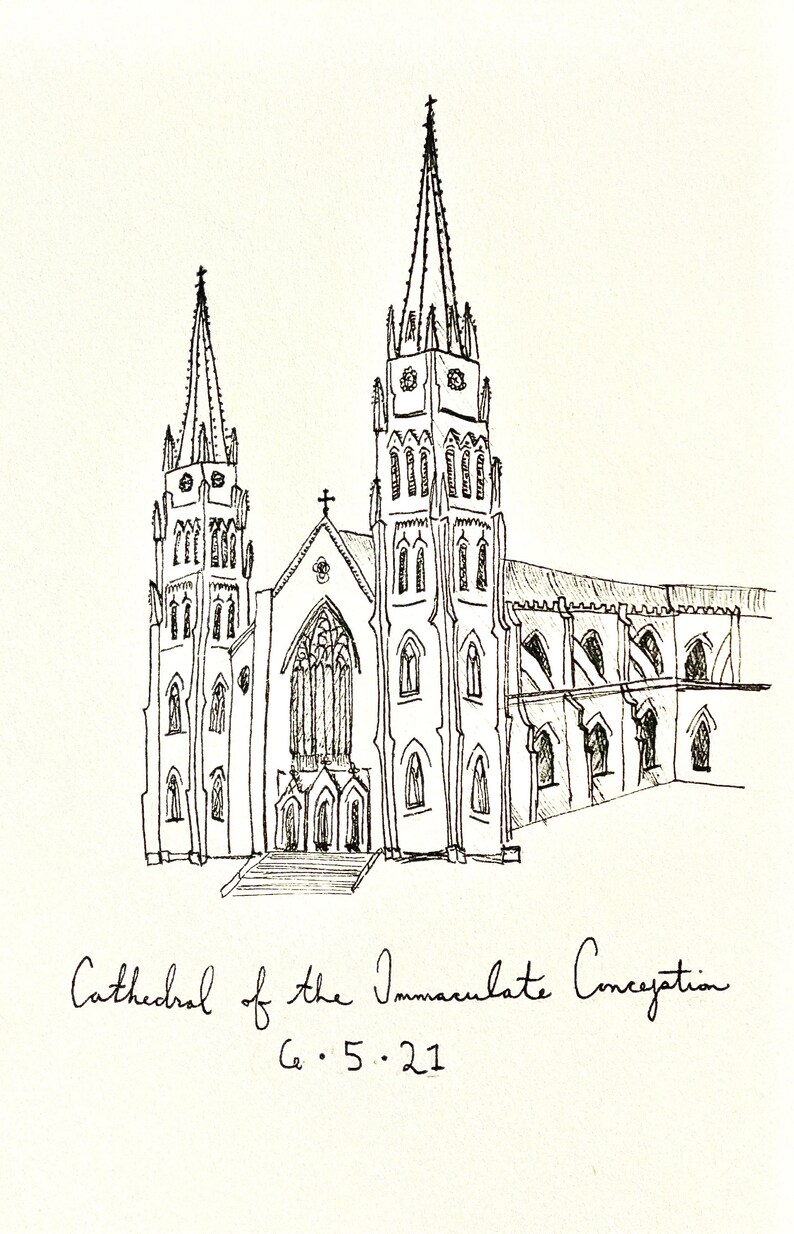 Cathedral of the Immaculate Conception
6 · 5 · 21